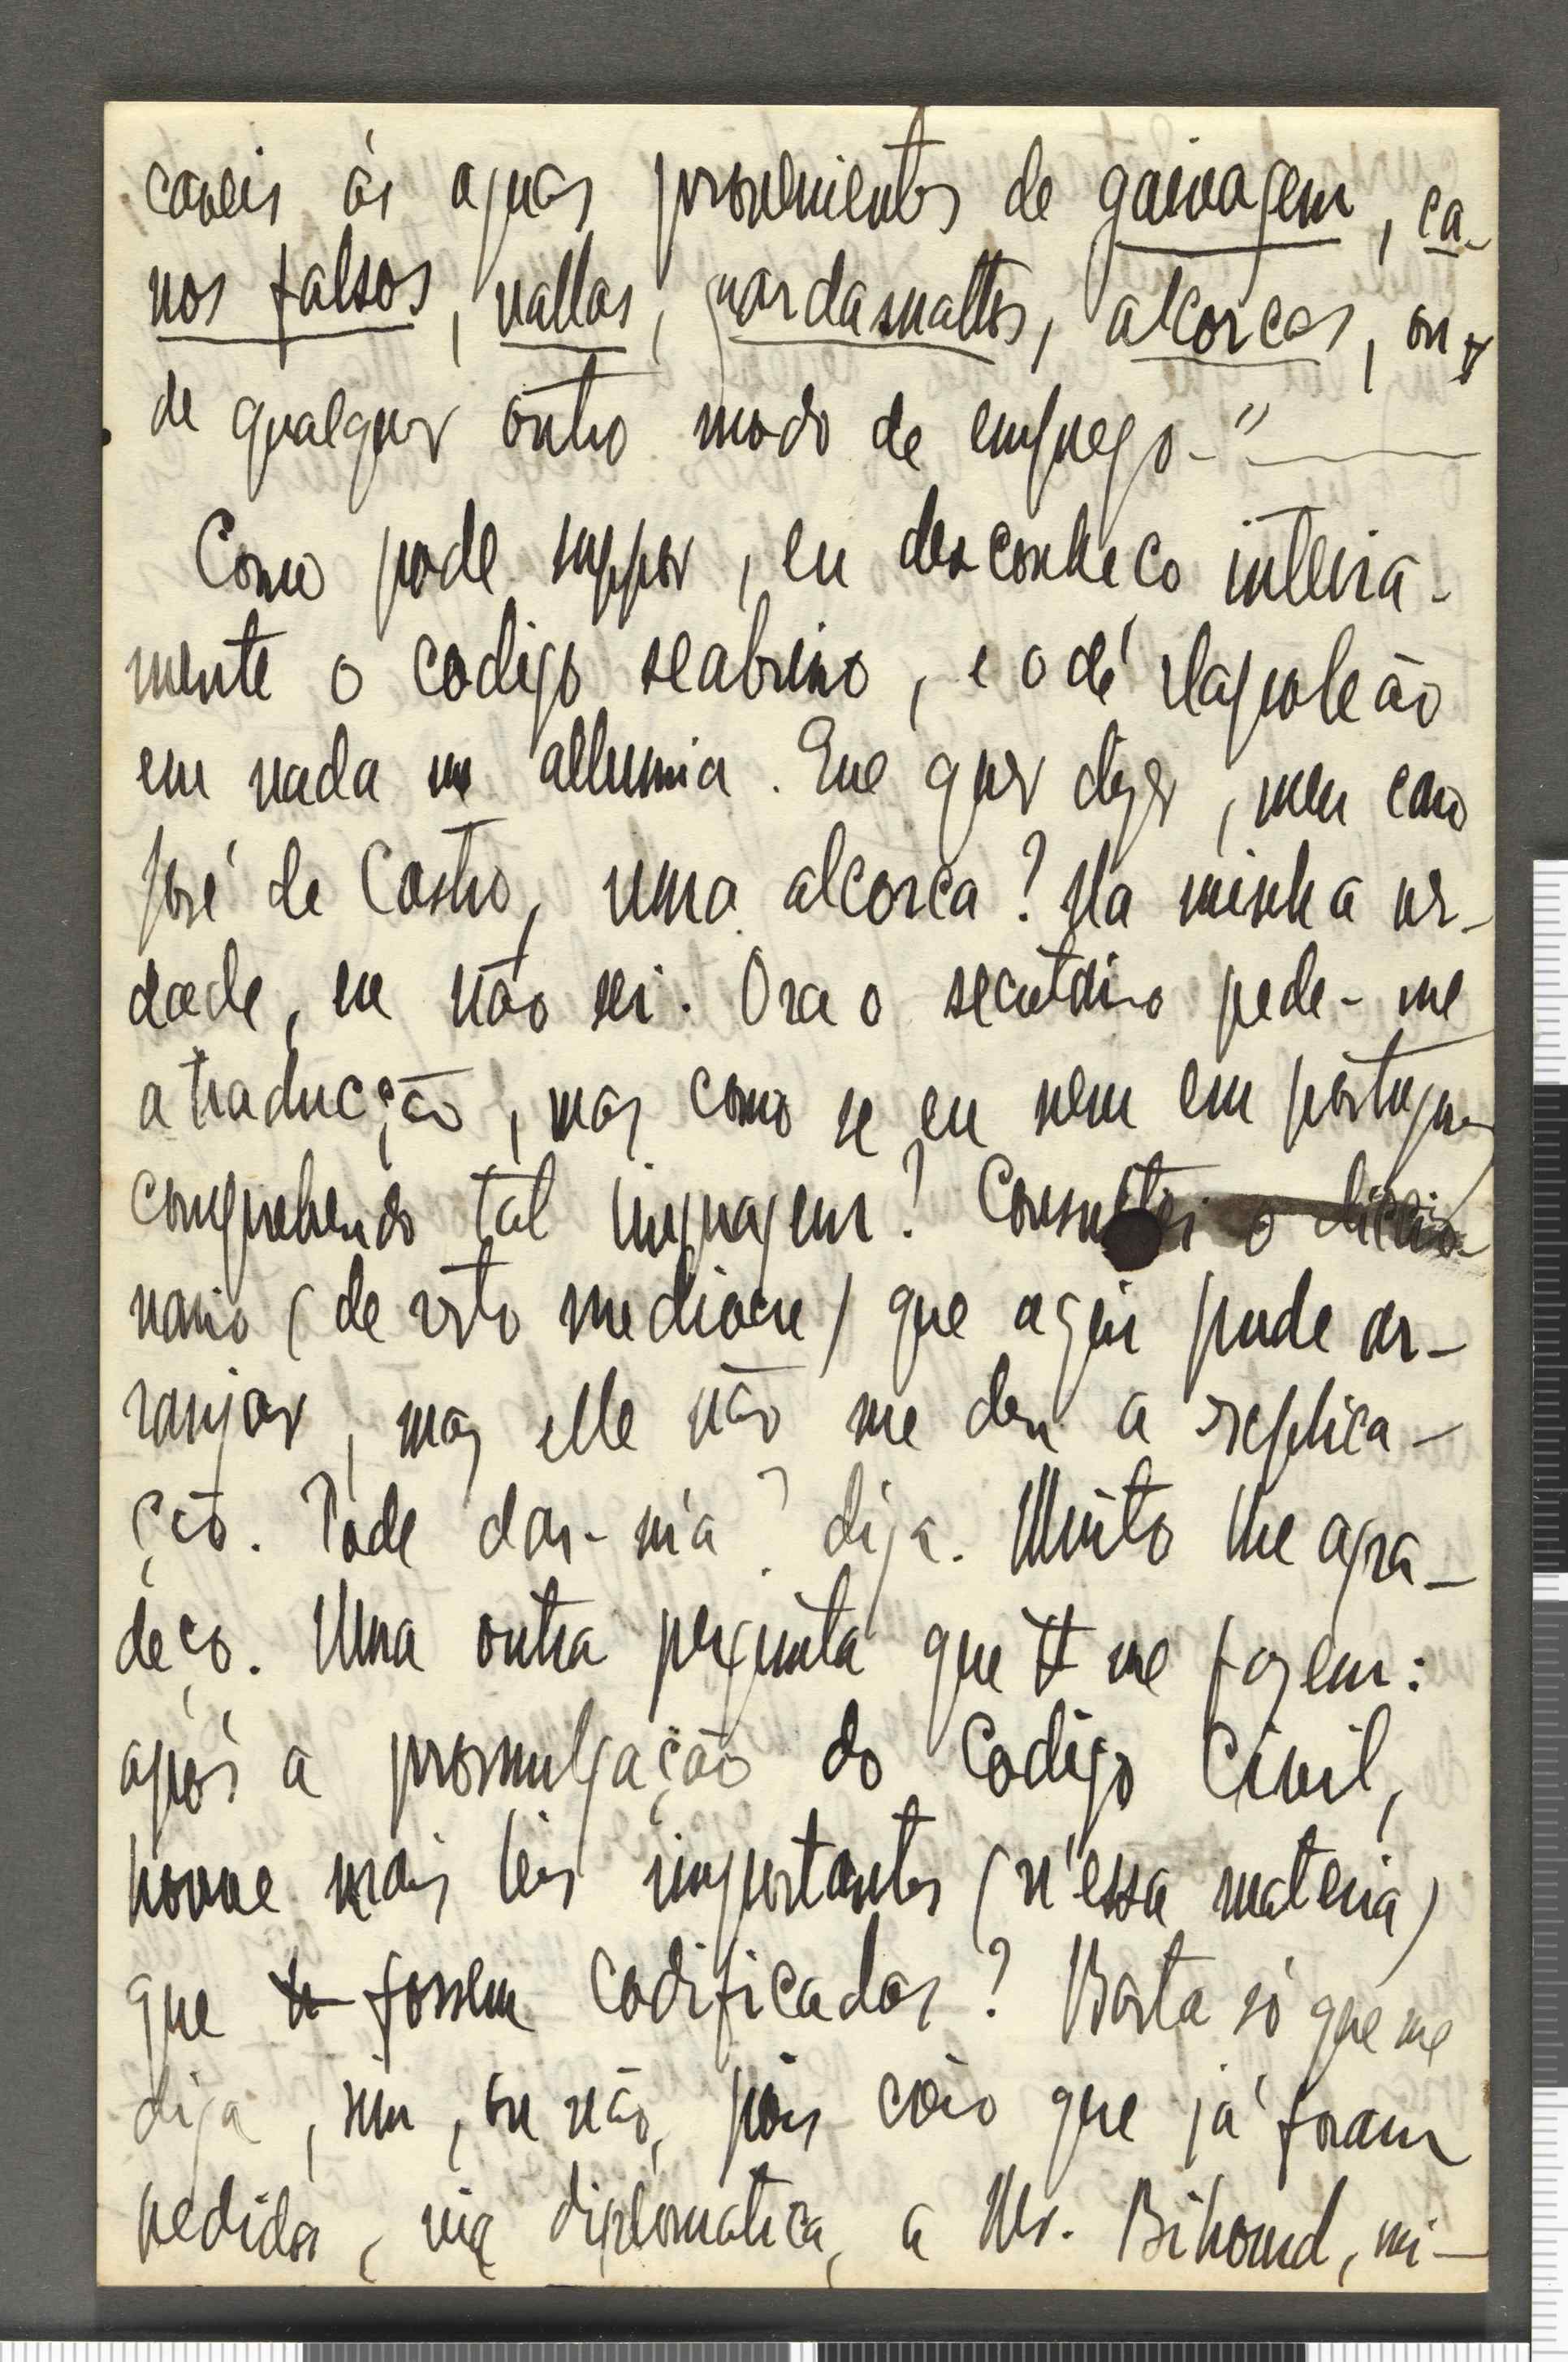 caveis ás aguas provenientes de gaivagem, ca-
nos falsos, vallas, guardasmattos, alcorcas, ou
de qualquer outro modo de emprego."
Como pode suppor, eu desconheço inteira-
mente o codigo seabrino, e o de Napoleão
em nada me allumia. Que quer dizer, meu caro
José de Castro, uma alcorca? Na minha ver-
dade, eu não sei. Ora o secretario pede-me
a traducção, mas como se eu nem em portuguez
comprehendo tal linguagem? Consultei o diccio-
nario (de resto mediocre) que aqui pude ar-
ranjar, mas elle não me deu a explica-
ção. Póde dar-m'a? diga. Muito lhe agra-
deço. Uma outra pergunta que me fazem:
após a promulgação do Codigo Civil,
houve mais leis importantes (n'essa materia)
que fossem codificadas? Basta só que me
diga, sim, ou não, pois creio que já foram
pedidas, via diplomatica, a Mr. Bihourd, mi-